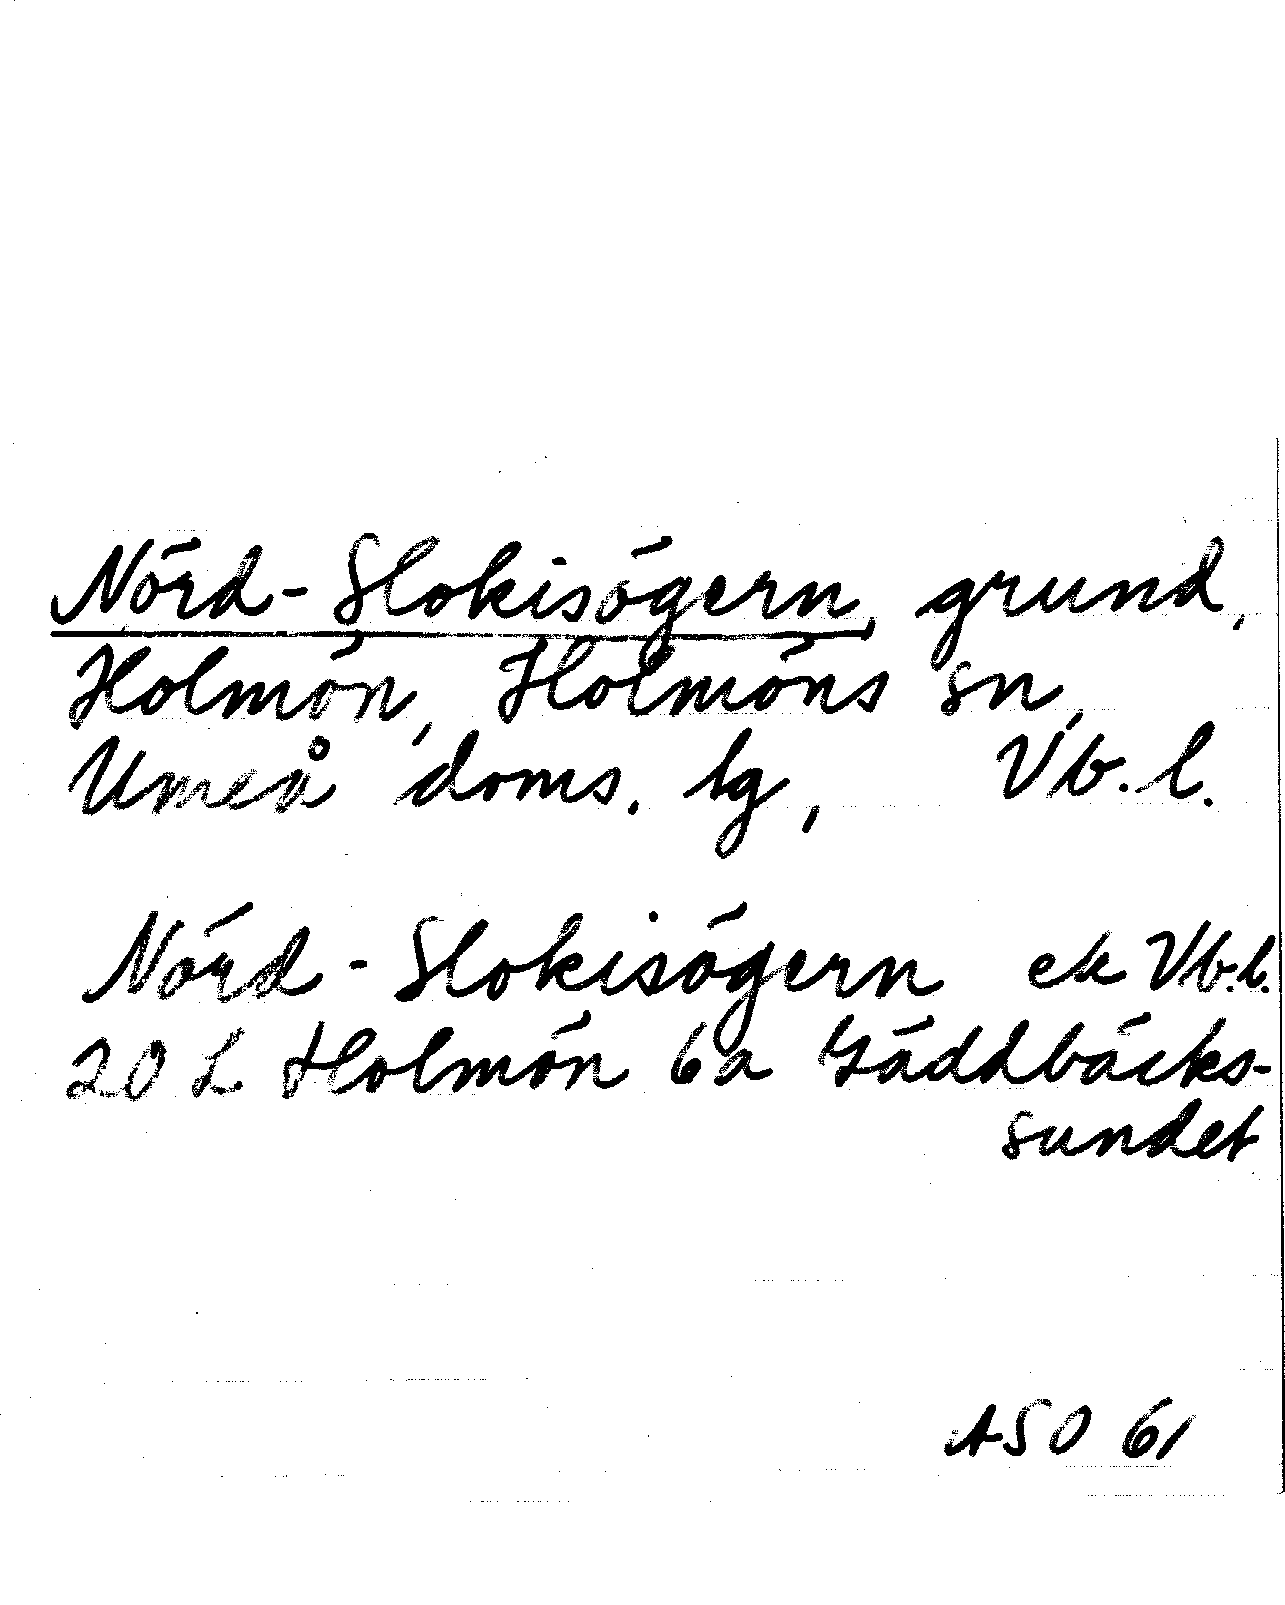 Nörd-Slokisögern, grund,
Holmön, Holmöns sn,
Umeå doms. tg, Vb. l.
Nörd-Slokisögern ek Vb.l.
20 L Holmön 6a Gäddbäcks-
sundet
ASO 61